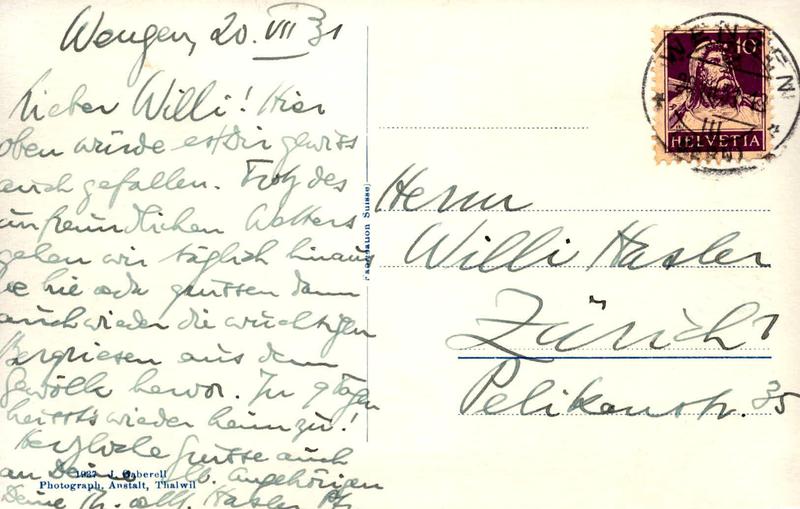 Wengen, 20. VII 31
Lieber Willi! Hier
oben würde es Dir gewiss
auch gefallen. Trotz des
unfreundlichen Wetters
gehen wir täglich hinaus
hie & da grüssen dann
auch wieder die wuchtigen
Bergriesen aus dem
Gewölk hervor. In 9 Tagen
heissts wieder heimzu!
Herzliche Grüsse auch
an Deine lb. Angehörigen
Deine Hasler
1927 J. Gaberell
Photograph. Anstalt, Thalwil
WENGEN
10
HELVETIA
Herrn
Willi Hasler
Zürich 1
Pelikanstr. 35